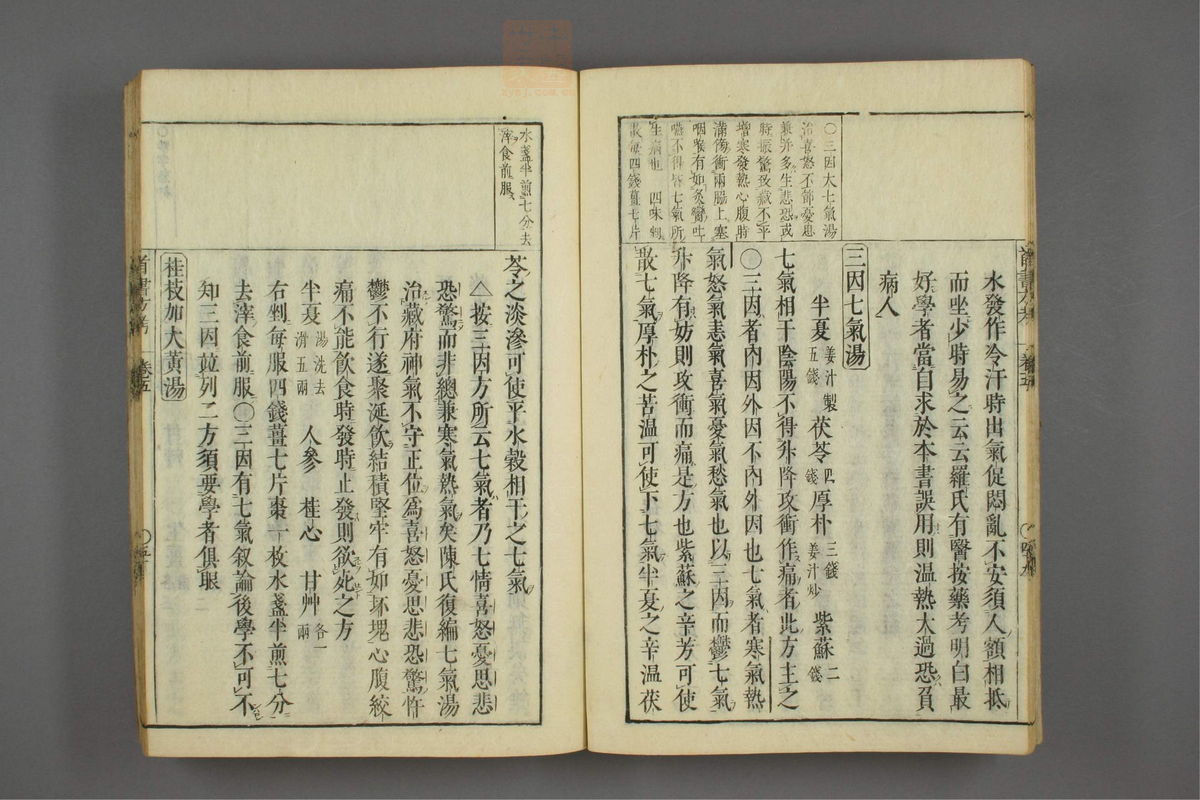 水發作冷汗時出氣促悶亂不安須人額相抵
而坐少時易之云云羅氏有醫按藥考明白最
好學者當自求於本書誤用則温熱太過恐負
病人
三因七氣湯
半夏姜汁製五錢 茯苓四錢 厚朴三錢姜汁炒 紫蘇二錢
七氣相干陰陽不得升降攻衝作痛者此方主之
〇三因者内因外因不内外因也七氣者寒氣熱
氣怒氣恚氣喜氣憂氣愁氣也以三因而鬱七氣
升降有妨則攻衝而痛是方也紫蘇之辛芳可使
散七氣厚朴之苦温可使下七氣半夏之辛温茯
〇三因大七氣湯
治喜怒不節憂思
兼并多生悲恐或
時振驚致藏不平
增寒發熱心腹時
滿傍衝兩脇上塞
咽喉有如炙臠吐
嚥不得皆七氣所
生病也 四味剉
散每四錢薑七片
水盞半煎七分去
滓食前服
苓之淡滲可使平水穀相干之七氣
△按三因方所云七氣者乃七情喜怒憂思悲
恐驚而非總兼寒氣熱氣矣陳氏復編七氣湯
治藏府神氣不守正位爲喜怒憂思悲恐驚忤
鬱不行遂聚涎飲結積堅牢有如坏塊心腹絞
痛不能飲食時發時止發則欲死之方
半夏湯洗去滑五兩 人參 桂心 甘艸各一兩
右剉每服四錢薑七片棗一枚水盞半煎七分
去滓食前服〇三因有七氣叙論後學不可不
知三因竝列二方須要學者俱眼
桂枝加大黄湯
首書方考 卷五